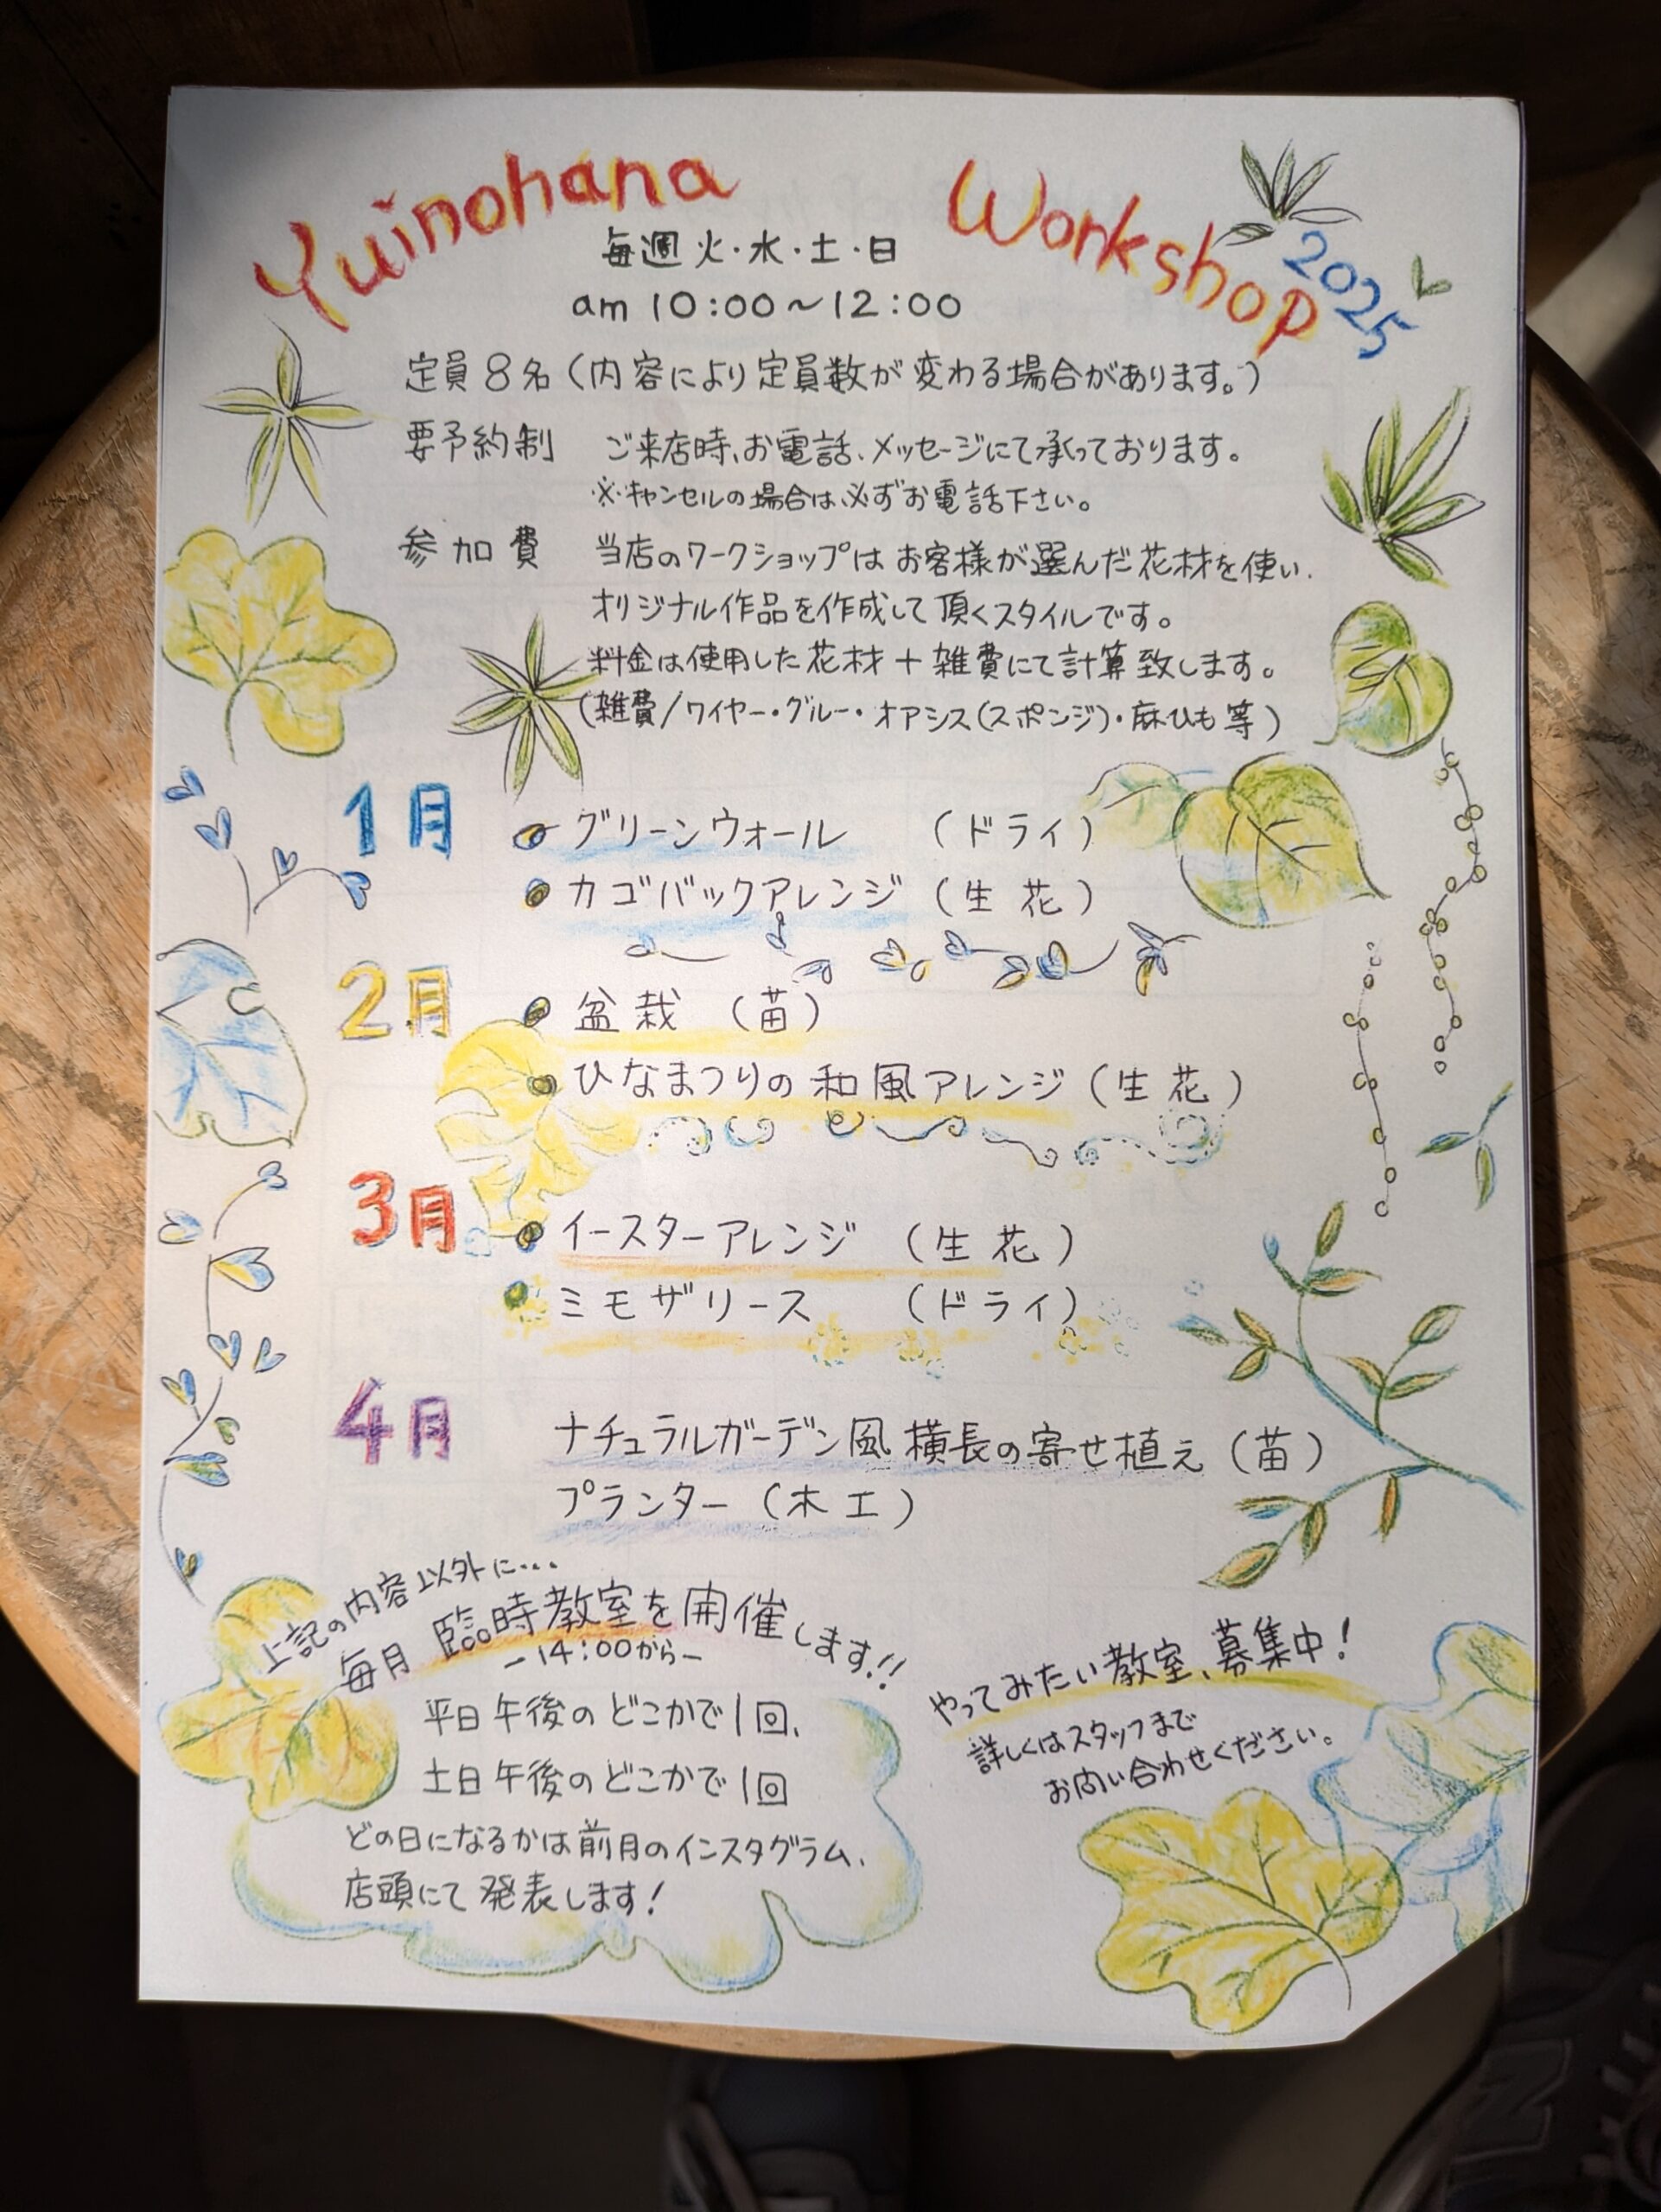 Yuinohana Workshop 2025
毎週火・水・土・日
am 10:00～12:00
定員8名（内容により定員数が変わる場合があります。）
要予約制 ご来店時、お電話、メッセージにて承っております。
※キャンセルの場合は、必ずお電話下さい。
参加費 当店のワークショップはお客様が選んだ花材を使い、
オリジナル作品を作成して頂くスタイルです。
料金は使用した花材＋雑費にて計算致します。
（雑費/ワイヤー・グルー・オアシス(スポンジ)・麻ひも等）
1月 ・グリーンウォール （ドライ）
・カゴバックアレンジ（生花）
2月 ・盆栽 （苗）
・ひなまつりの和風アレンジ（生花）
3月 ・イースターアレンジ （生花）
・ミモザリース （ドライ）
4月 ナチュラルガーデン風横長の寄せ植え（苗）
プランター（木工）
上記の内容以外に・・・
毎月臨時教室を開催します!!
－14:00から－
平日午後のどこかで1回、
土日午後のどこかで1回
どの日になるかは前月のインスタグラム、
店頭にて発表します！
やってみたい教室、募集中！
詳しくはスタッフまで
お問い合わせください。